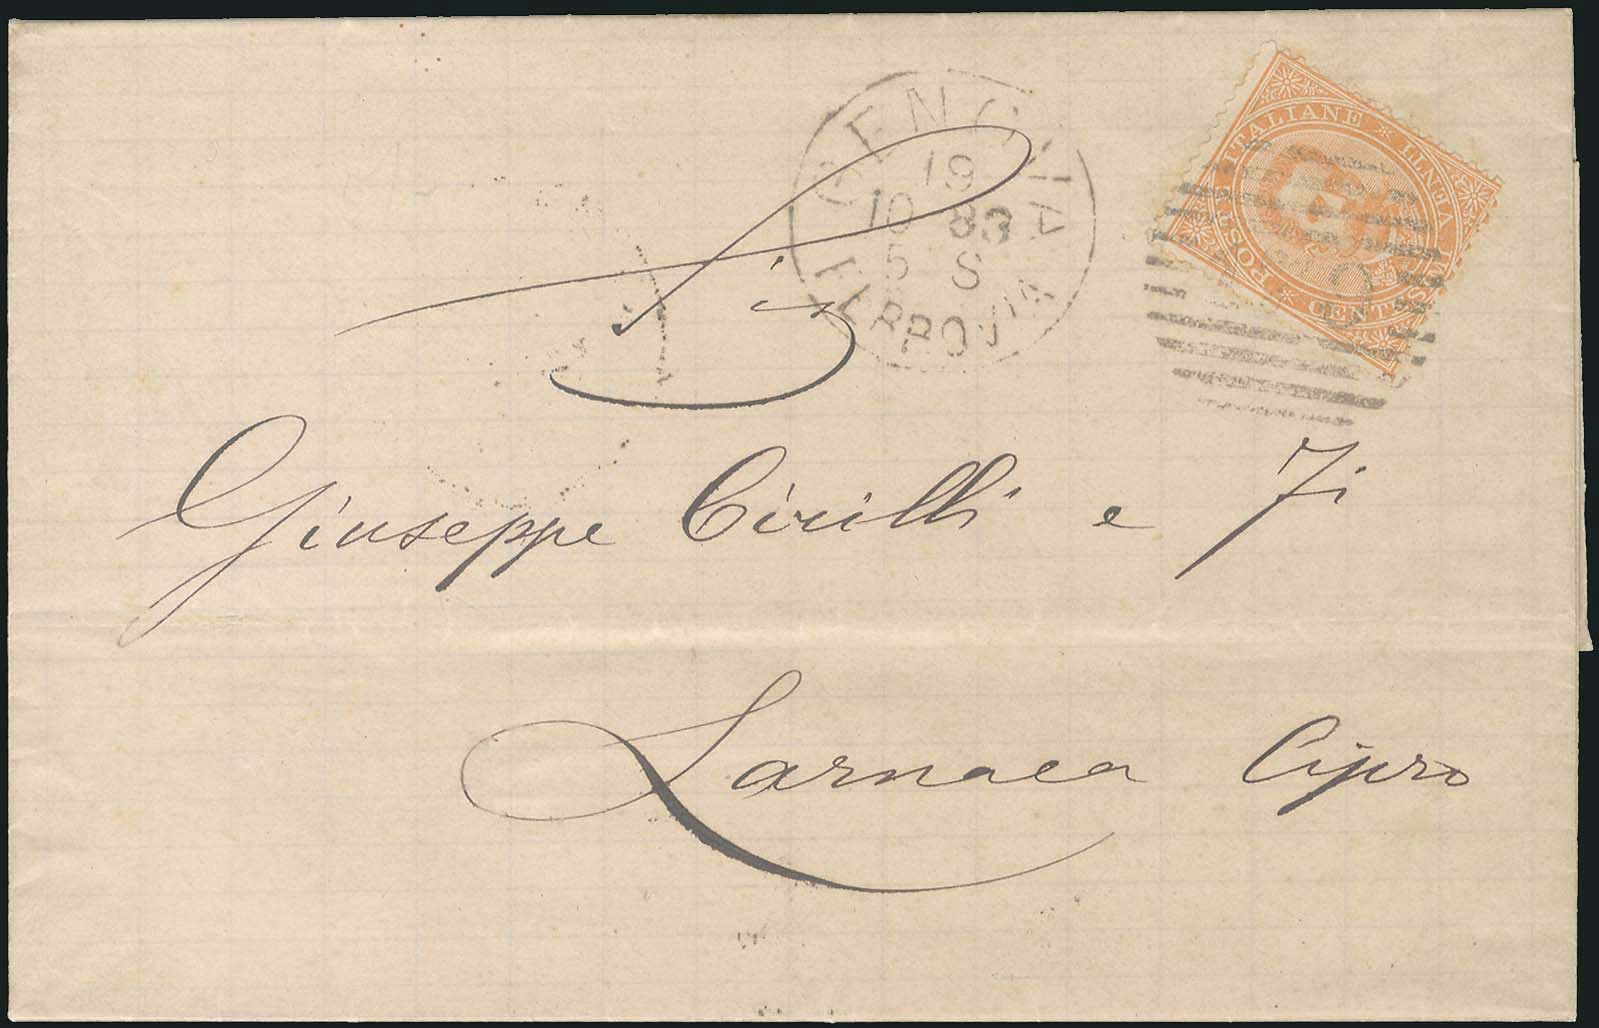 GENOVA
19
10 83
5 S
FERROVIA
POSTE ITALIANE * CENTESIMI VENTI *
Sig
Giuseppe Cirilli e Fi
Larnaca Cipro